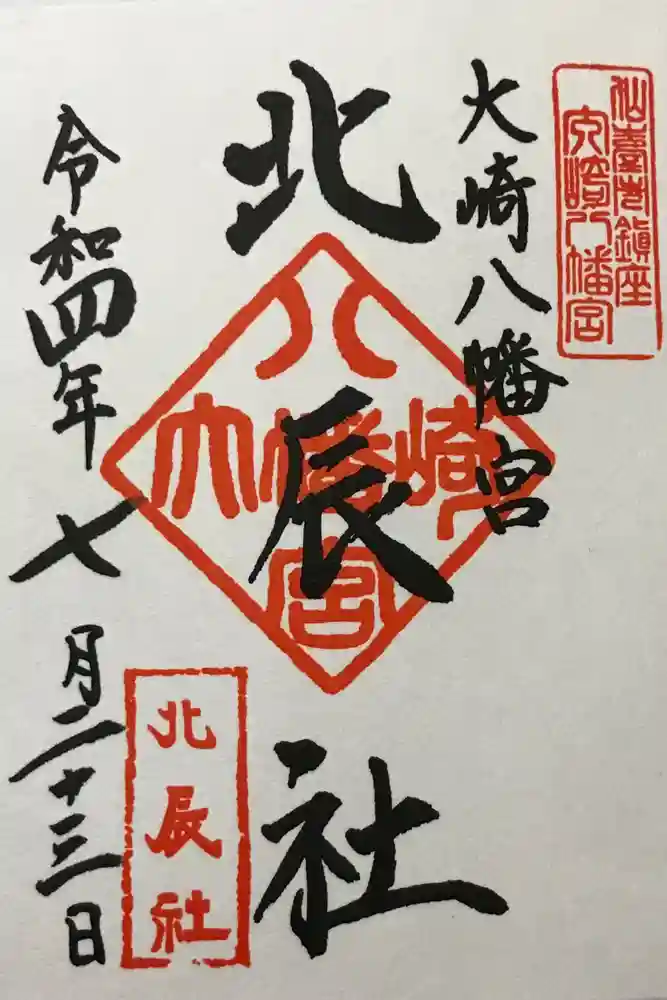 大崎八幡宮
北辰社
令和四年七月二十三日
大崎八幡宮
大崎八幡宮
北辰社